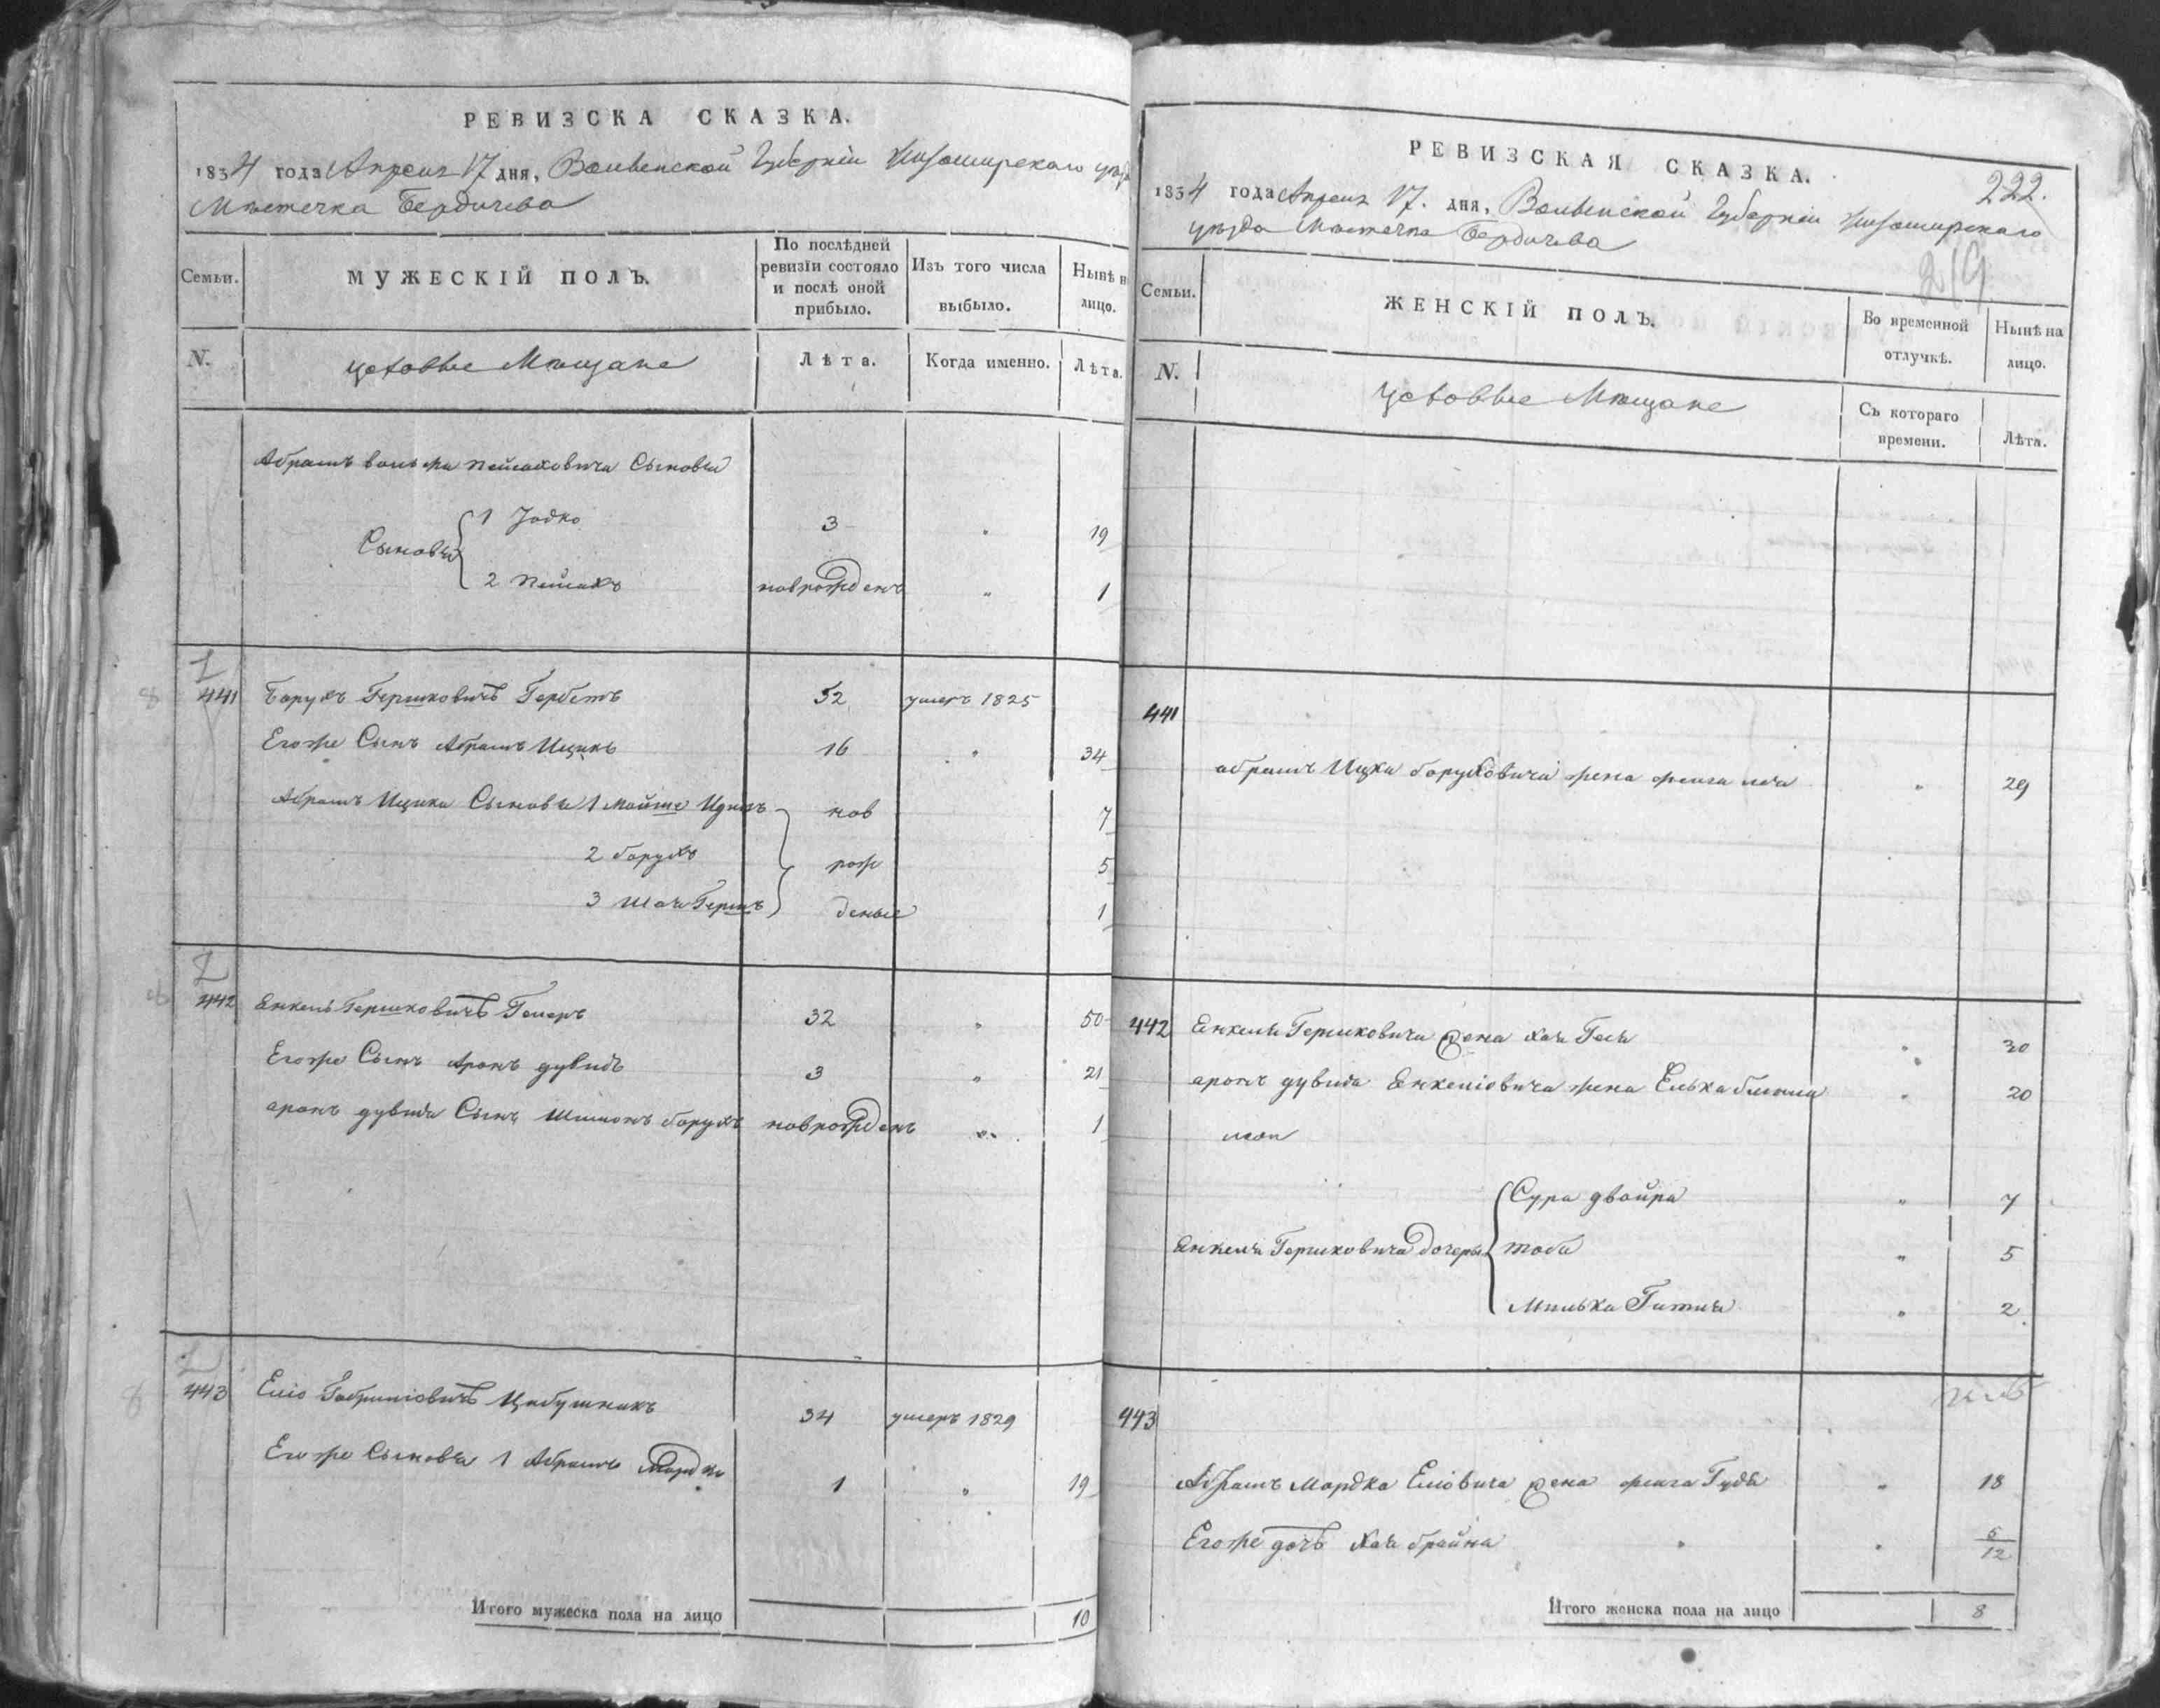 РЕВИЗСКА СКАЗКА.
1834 года Апреля 17 дня, Волынской Губерніи Житомирскаго уѣзда
Мѣстечка Бердичева
Семьи.
МУЖЕСКІЙ ПОЛЪ.
По послѣдней
ревизіи состояло
и послѣ оной
прибыло.
Изъ того числа
выбыло.
Нынѣ н
лицо.
N.
Мѣщане
Лѣта.
Когда именно.
Лѣта.
Абрамъ Вольфа Пейсаховича Сыновья
Сыновья
1 Іодко 3 " 19
2 Пейсахъ новрожденъ " 1
441 Борухъ Гершковичъ Гербетъ 52 умеръ 1825
Егоже Сынъ Абрамъ Ицикъ 16 " 34
Абрамъ Ицика Сыновья 1 Мойше нов 7
2 борухъ рож 5
3 Гершъ деные 1
442 Енкель Гершковичъ 32 " 50
Егоже Сынъ Аронъ дувидъ 3 " 21
аронъ дувида Сынъ Шимонъ борухъ новрожденъ " 1
443 Еліо Габриліовичъ Цибульникъ 34 умеръ 1829
Егоже Сыновья 1 Абрамъ Мордко 1 " 19
Итого мужеска пола на лицо 10
РЕВИЗСКАЯ СКАЗКА.
222.
1834 года Апреля 17. дня, Волынской Губерніи Житомирскаго
уѣзда Мѣстечка Бердичева
219
Семьи.
ЖЕНСКІЙ ПОЛЪ.
Во временной
отлучкѣ.
Нынѣ на
лицо.
N.
Мѣщане
Съ котораго
времени.
Лѣта.
441
абрамъ Ицка боруховича жена " 29
442 Енкеля Гершковича жена хая Геся " 30
аронъ дувида Енкеліовича жена Елька блюма " 20
Енкеля Гершковича дочеры
Сура двойра " 7
тоба " 5
Милька Гитля " 2
443
Абрамъ Мордка Еліовича жена " 18
Егоже дочь хая брайна " " 6/12
Итого женска пола на лицо 8